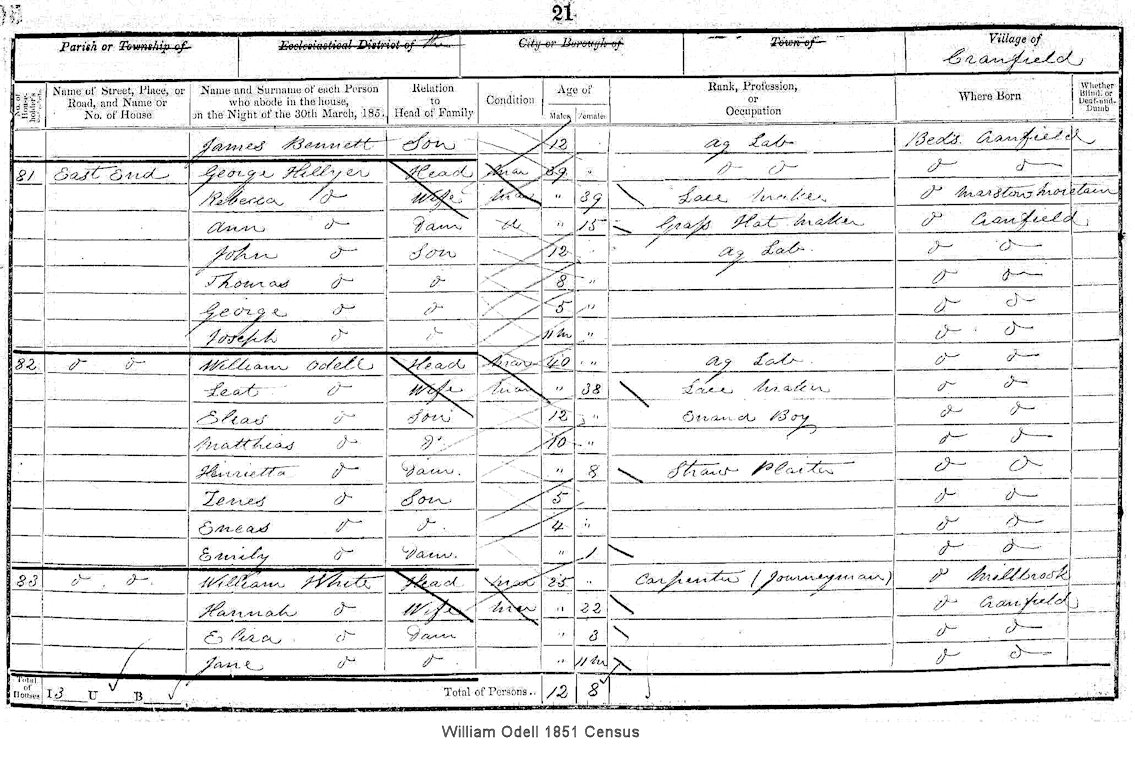 21
Parish or Township of Ecclesiastical District of the City or Borough of Town of Village of Cranfield
No. of House-holder's Schedule Name of Street, Place, or Road, and Name or No. of House Name and Surname of each Person who abode in the house, on the Night of the 30th March, 185. Relation to Head of Family Condition Age of Males Females Rank, Profession, or Occupation Where Born Whether Blind, or Deaf-and-Dumb
James Bennett Son 12 Ag Lab Beds Cranfield
81 East End George Hillyer Head Mar 39 " Do Do Do Do
Rebecca Do Wife Mar " 39 Lace Maker Do Marston Moretain
Ann Do Daur " 15 Grass Hat Maker Do Cranfield
John Do Son 12 Ag Lab Do Do
Thomas Do Do 8 " Do Do
George Do Do 5 " Do Do
Joseph Do Do 11m " Do Do
82 Do Do William Odell Head Mar 40 " Ag Lab Do Do
Leat Do Wife Mar " 38 Lace Maker Do Do
Elias Do Son 12 " Errand Boy Do Do
Matthias Do Do 10 " Do Do
Henrietta Do Daur. " 8 Straw Plaiter Do Do
Zenes Do Son 5 Do Do
Eneas Do Do. 4 " Do Do
Emily Do Daur. " 1 Do Do
83 Do Do William White Head Mar 25 " Carpenter (Journeyman) Do Millbrook
Hannah Do Wife Mar " 22 Do Cranfield
Eliza Do Daur " 3 Do Do
Jane Do Do " 11m Do Do
Total of Houses I 3 U B Total of Persons.. 12 8
William Odell 1851 Census